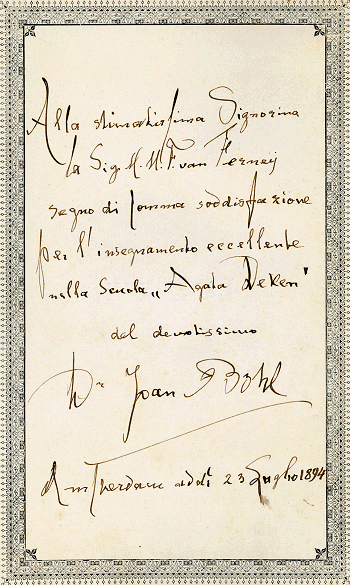 Alla stimatissima Signorina
la Sig. H. H. F. van Ferneij
segno di somma soddisfazione
per l'insegnamento eccellente
nella Scuola „Agata Deken"
del devotissimo
Dr Joan Bohl
Amsterdam addì 23 Luglio 1894